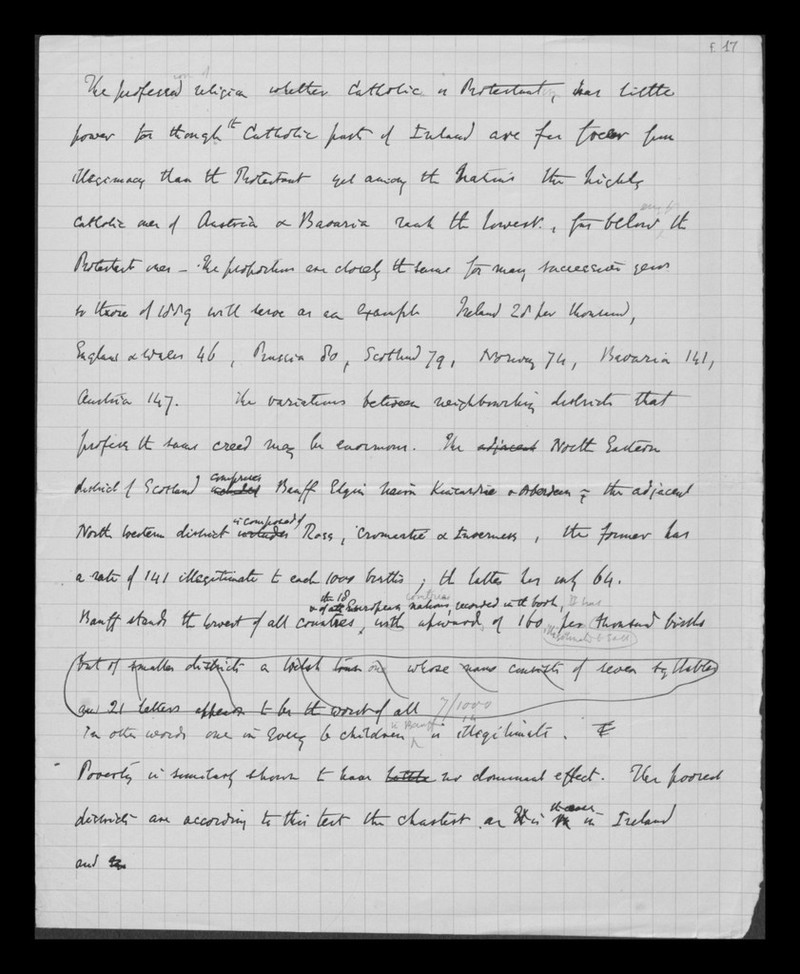 f. 17
The professed religion whether Catholic or Protestant, has little
power for though the Catholic parts of Ireland are far freer from
illegimacy than the Protestant yet among the nations the highly
Catholic ones of Austria & Bavaria rank the lowest, far below the
Protestant ones – The proportions are closely the same for many successive years
so those of 1889 will serve as an example Ireland 28 per thousand,
England & Wales 46, Prussia 80, Scotland 79, Norway 74, Bavaria 141,
Austria 147. The variations between neighbouring districts that
profess the same creed may be enormous. The adjacent North Eastern
comprises
district of Scotland included Banff Elgin Nairn Kincardine & Aberdeen & the adjacent
is composed of
North Western district includes Ross, Cromartie & Inverness, the former has
a rate of 141 illegitimate to each 1000 births; the latter has only 64.
the 18
& of all European nations, recorded in the book, it has
Banff stands the lowest of all countries, with upwards of 160 per thousand births
illegitimate to each
But of smaller districts a Welsh town one whose name consists of seven syllables
and 21 letters appears to be the worst of all 7/1000
in Banff
In other words one in every 6 children is illegitimate.
Poverty is similarly shown to have little no dominant effect. The poorest
the case
districts are according to this test the chastest as it is in Ireland
and